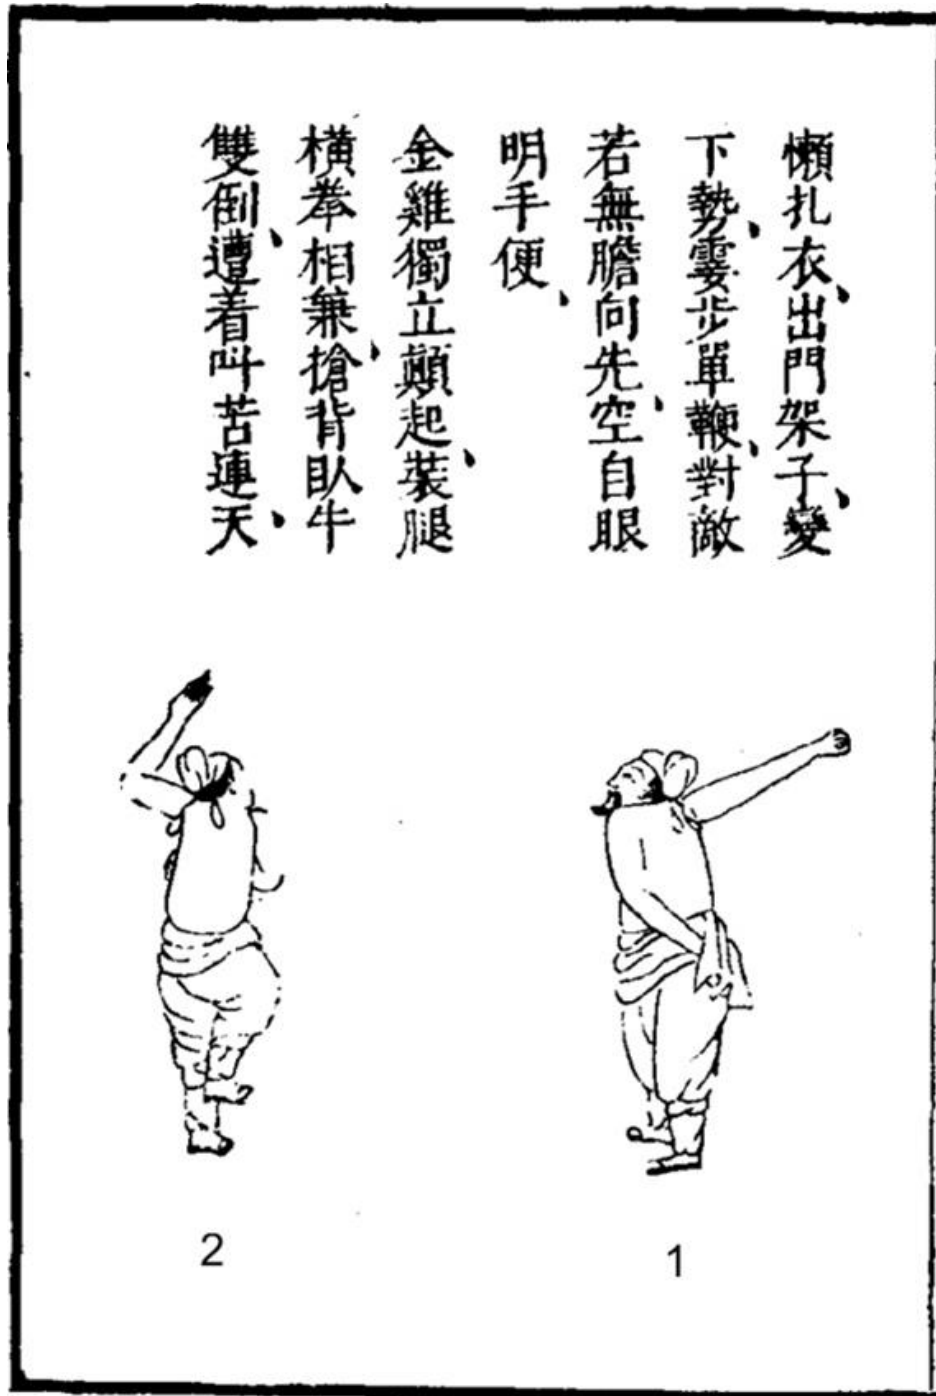 懶扎衣、出門架子、變
下勢、霎步單鞭、對敵
若無膽向先、空自眼
明手便、
金雞獨立顛起、裝腿
橫拳相兼、搶背臥牛
雙倒、遭着叫苦連天、
1
2